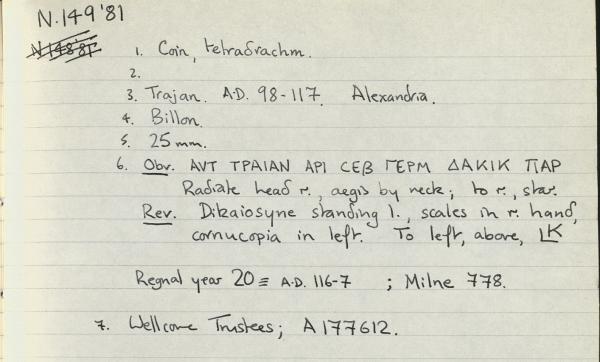 N.149'81
N 148'81
1. Coin, tetradrachm.
2.
3. Trajan. A.D. 98-117. Alexandria.
4. Billon.
5. 25 mm.
6. Obv. ΑVΤ ΤΡΑΙΑΝ ΑΡΙ CΕΒ ΓΕΡΜ ΔΑΚΙΚ ΠΑΡ
Radiate head r., aegis by neck; to r., star.
Rev. Dikaiosyne standing l., scales in r. hand,
cornucopia in left. To left, above, LK
Regnal year 20 ≡ A.D. 116-7 ; Milne 778.
7. Wellcome Trustees; A177612.